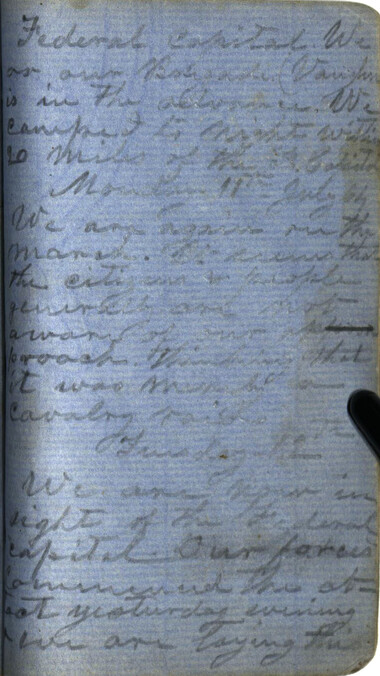 Federal Capital. We
or our Brigade (Vaughn
is in the advance. We
camped to night within
20 miles of the Capitol
Monday 11th July 64
We are again on the
march. It seems that
the citizens & people
generally are not
aware of our ap
proach. Thinking that
it was merely a
cavalry raid.
Tuesday 12th
We are now in
sight of the Federal
capital Our forces
commenced the at-
yesterday evening
we are laying this